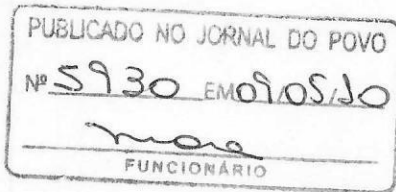 PUBLICADO NO JORNAL DO POVO
Nº 5930 EM 09/05/10
FUNCIONÁRIO